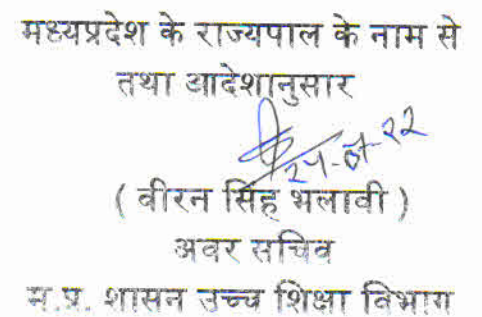 मध्यप्रदेश के राज्यपाल के नाम से
तथा आदेशानुसार
( वीरन सिंह भलावी )
अवर सचिव
म.प्र. शासन उच्च शिक्षा विभाग